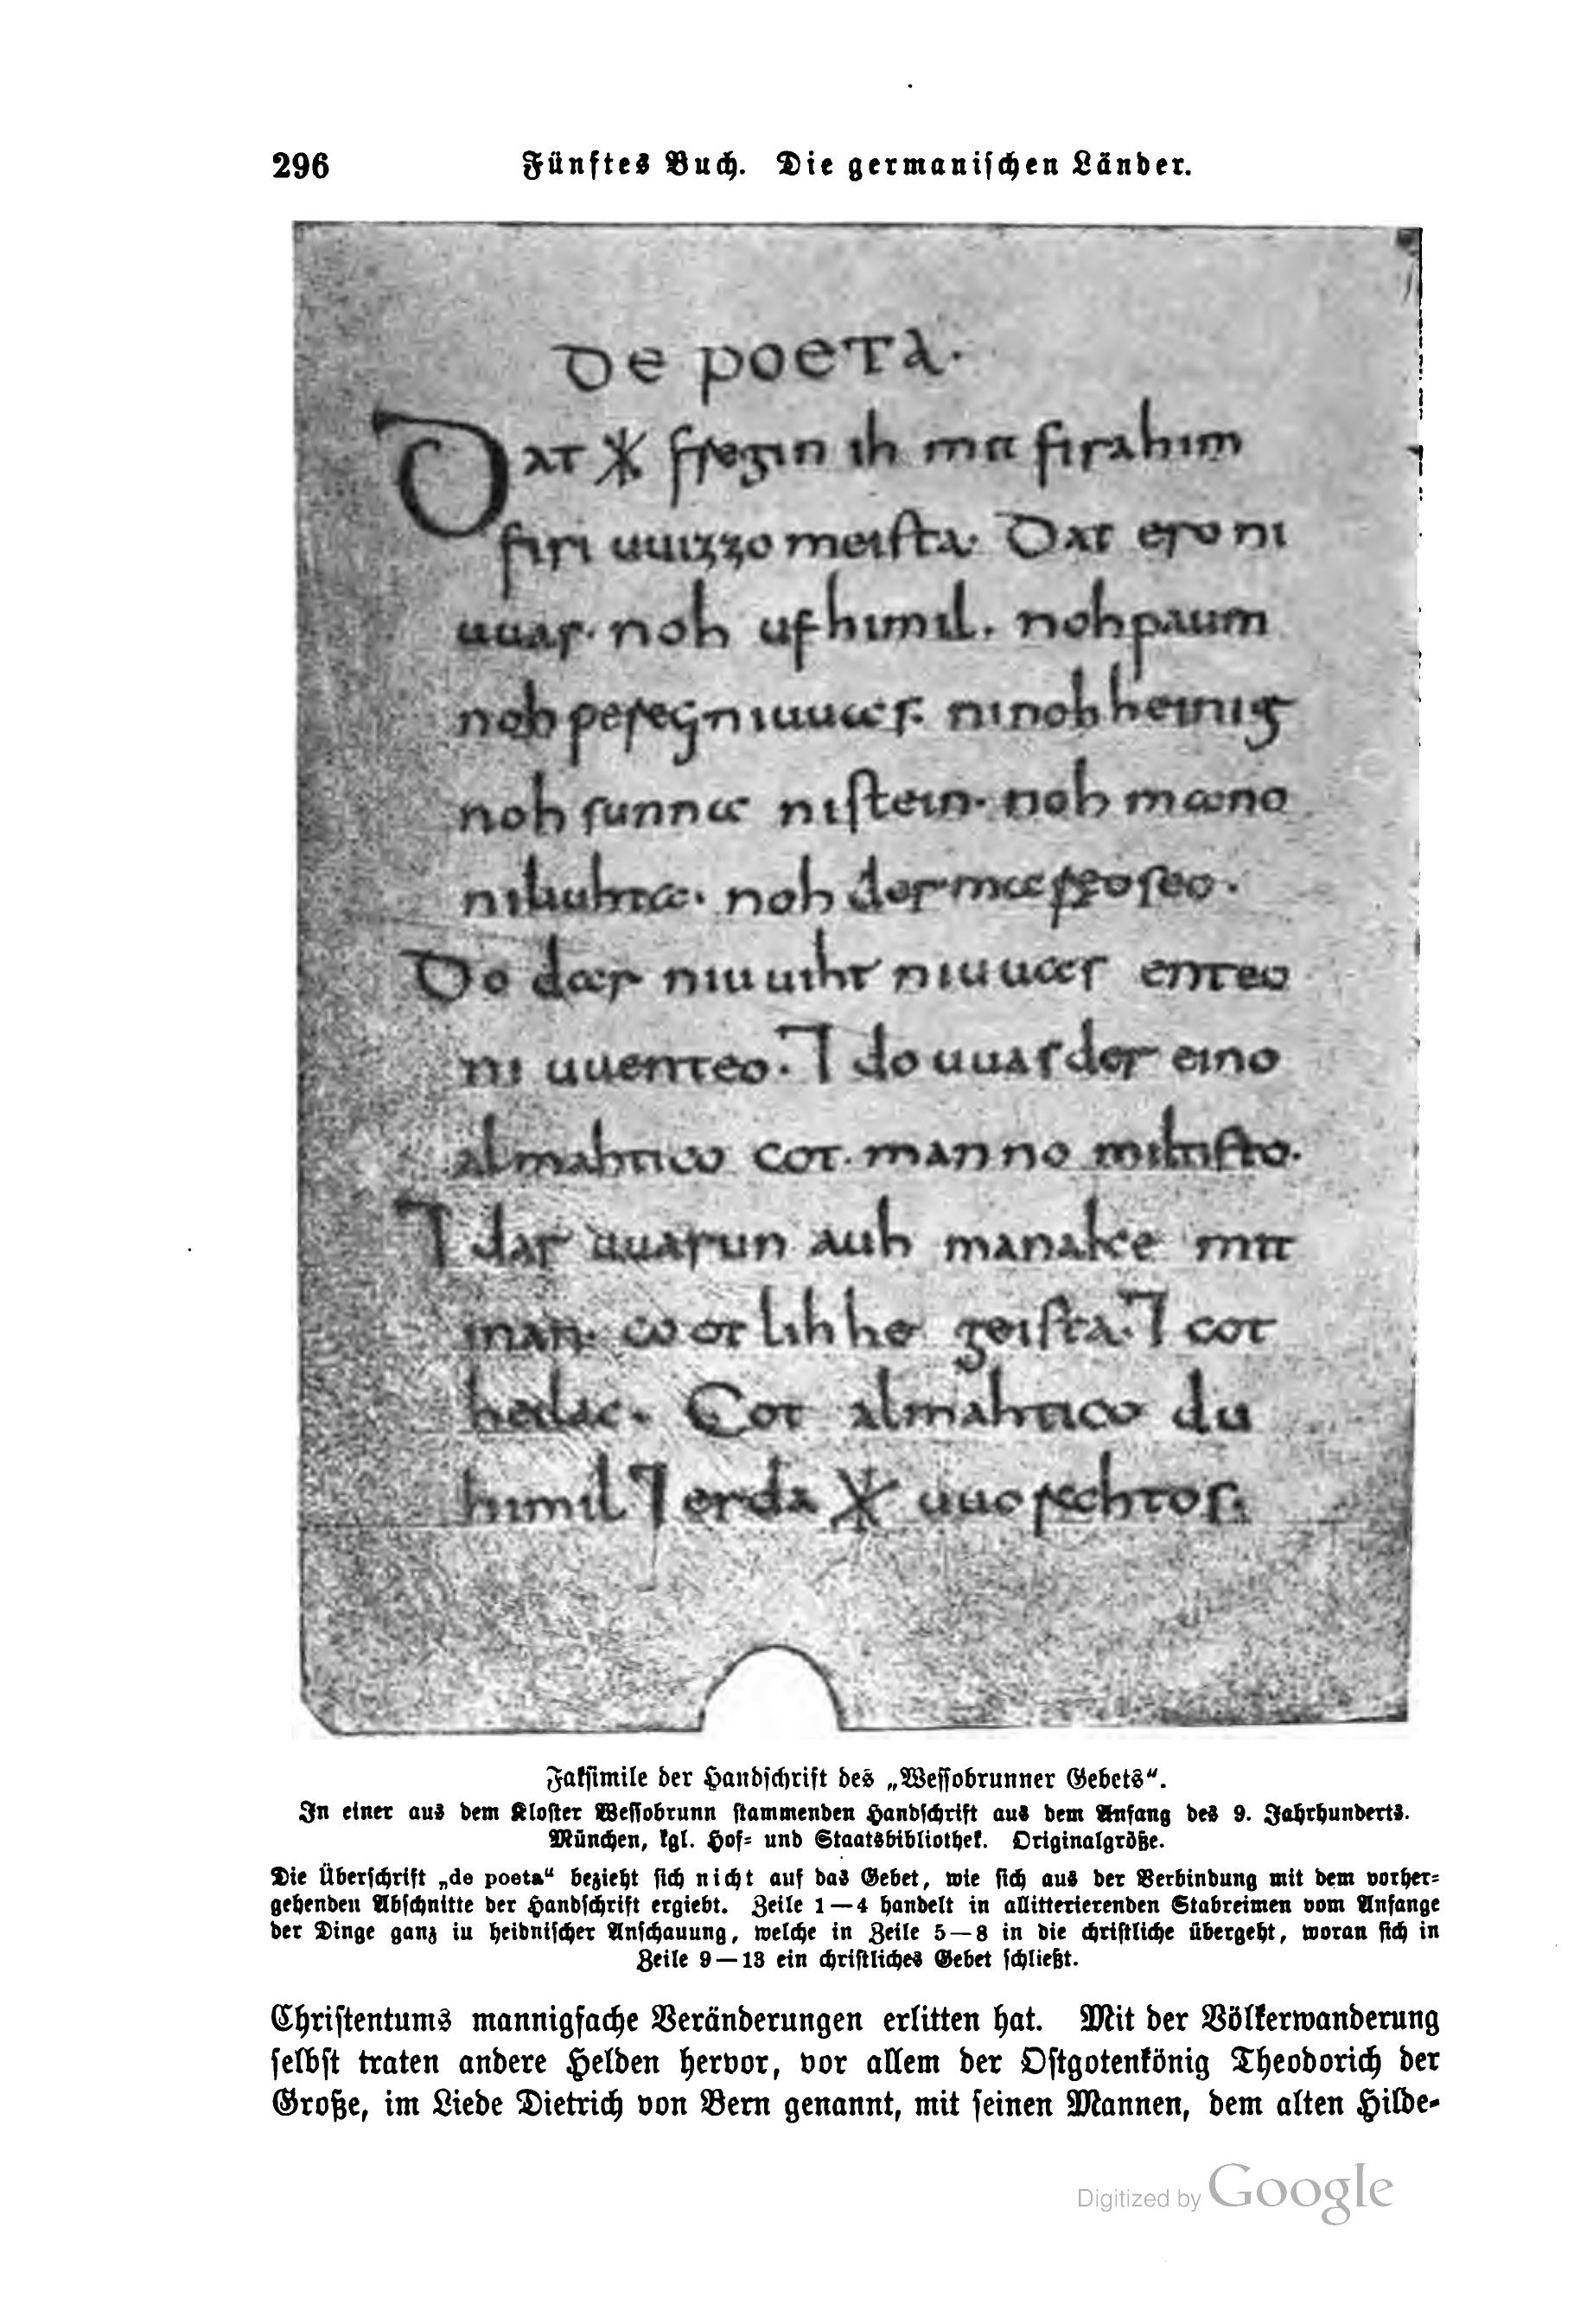 296 Fünftes Buch. Die germanischen Länder.
De poeta.
Dat ᚷ fregin ih mit firahim
firi uuizzo meista. Dat ero ni
uuas. noh ufhimil. noh paum
noh pereg ni uuas. ninoh heinig
noh sunna ni stein. noh mano
ni liuhta. noh der mareoseo.
Do dar niuuiht ni uuas enteo
ni uuenteo. ⁊ do uuas der eino
almahtico cot. manno miltisto.
⁊ dar uuarun auh manake mit
man. cootlihhe geista. ⁊ cot
heilac. Cot almahtico du
himil ⁊ erda ᚷ uuorahtos.
Faksimile der Handschrift des „Wessobrunner Gebets“.
In einer aus dem Kloster Wessobrunn stammenden Handschrift aus dem Anfang des 9. Jahrhunderts.
München, kgl. Hof- und Staatsbibliothek. Originalgröße.
Die Überschrift „de poeta“ bezieht sich nicht auf das Gebet, wie sich aus der Verbindung mit dem vorher-
gehenden Abschnitte der Handschrift ergiebt. Zeile 1—4 handelt in allitterierenden Stabreimen vom Anfange
der Dinge ganz iu heidnischer Anschauung, welche in Zeile 5—8 in die christliche übergeht, woran sich in
Zeile 9—13 ein christliches Gebet schließt.
Christentums mannigfache Veränderungen erlitten hat. Mit der Völkerwanderung
selbst traten andere Helden hervor, vor allem der Ostgotenkönig Theodorich der
Große, im Liede Dietrich von Bern genannt, mit seinen Mannen, dem alten Hilde-
Digitized by Google